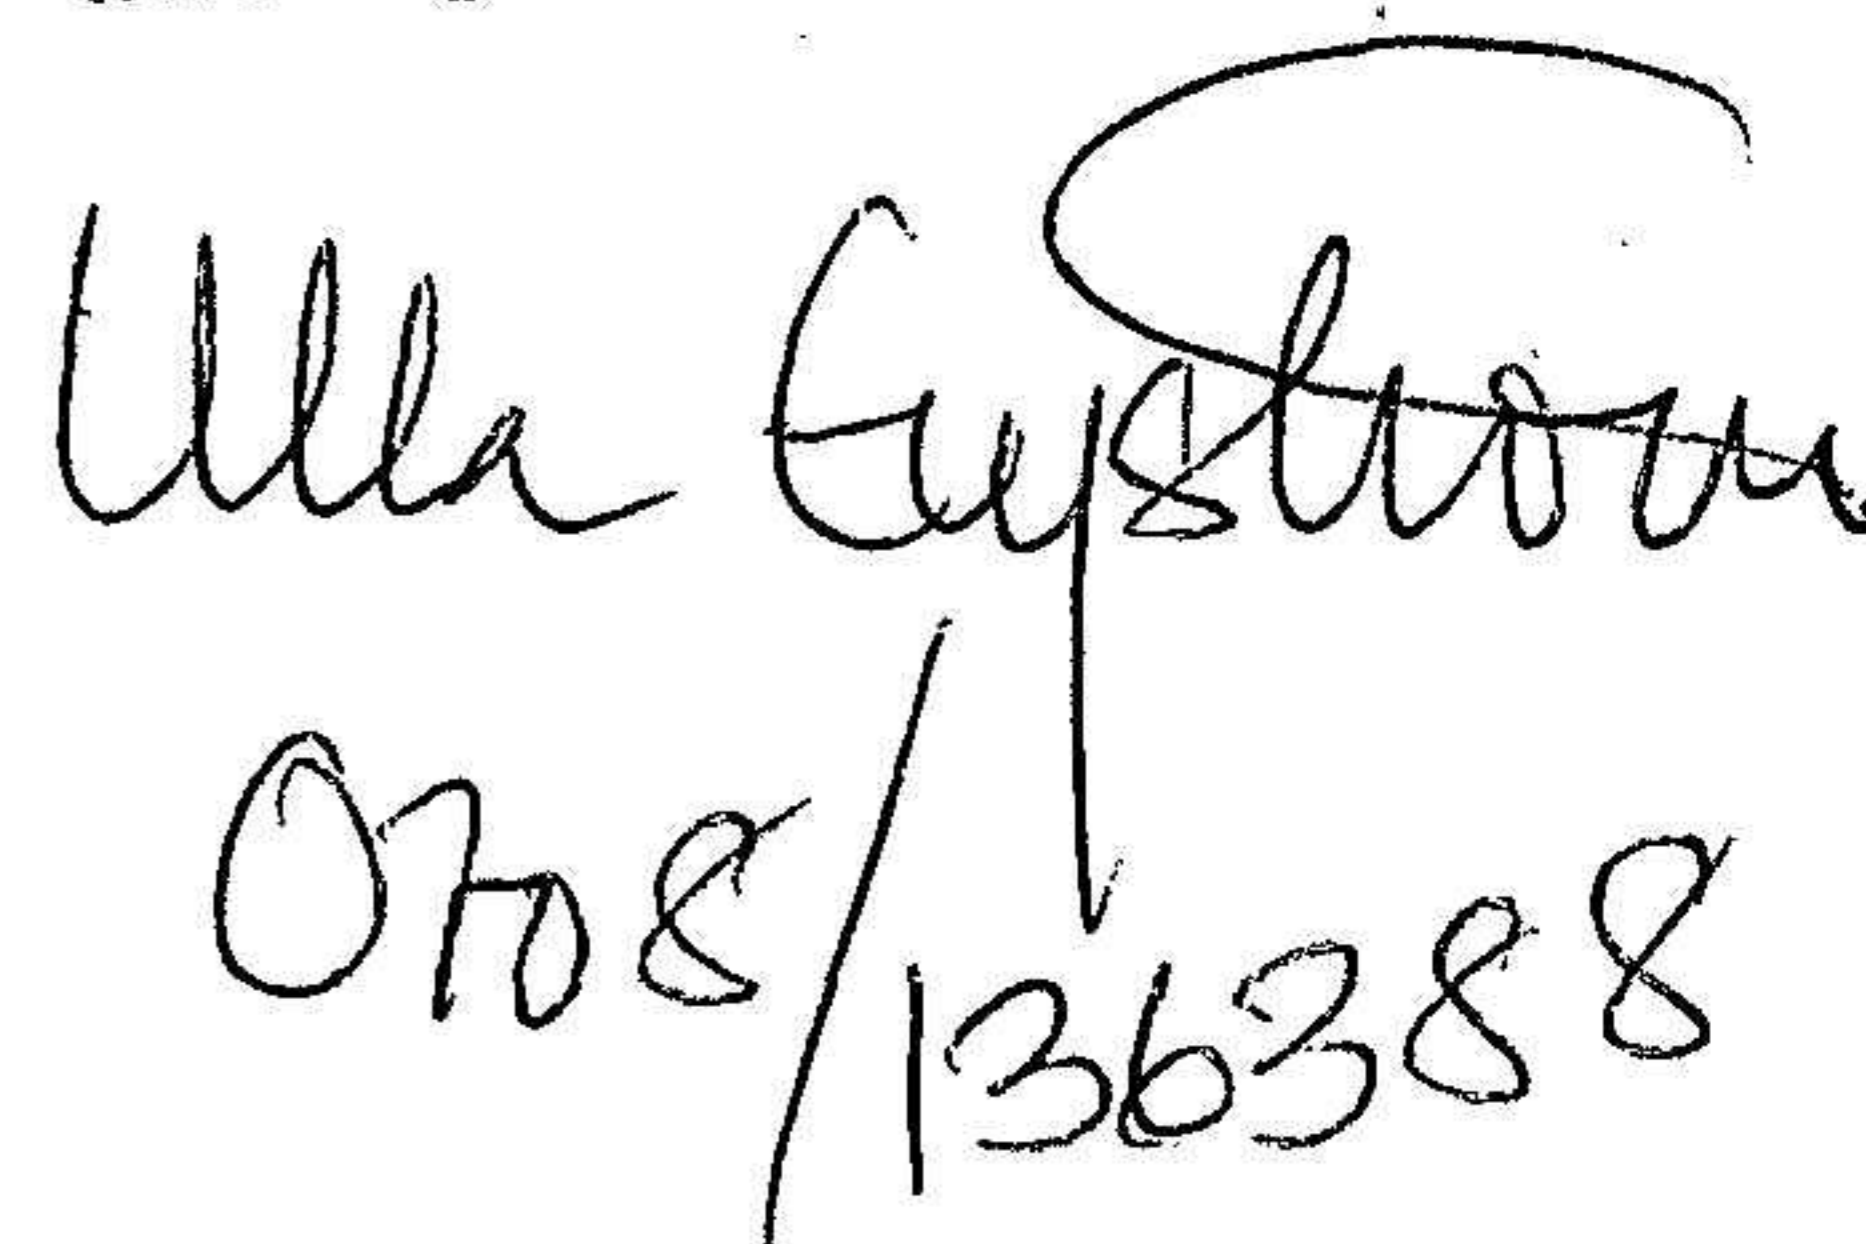 Ulla Enystrom
0708/136388